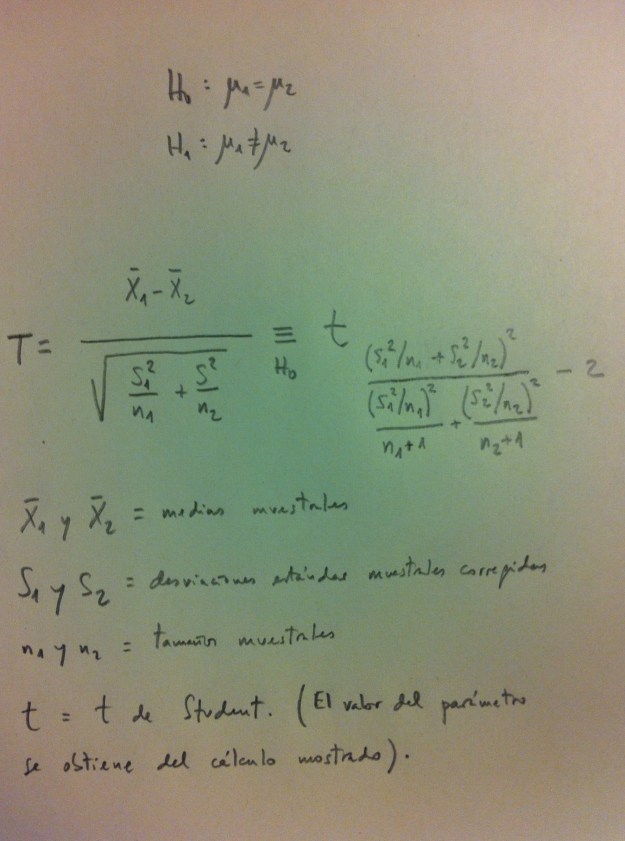 H₀ : μ₁ = μ₂
H₁ : μ₁ ≠ μ₂
T = (X̄₁ - X̄₂) / √(S₁²/n₁ + S²/n₂) ≡ H₀ t (S₁²/n₁ + S₂²/n₂)² / ((S₁²/n₁)²/(n₁+1) + (S₂²/n₂)²/(n₂+1)) - 2
X̄₁ y X̄₂ = medias muestrales
S₁ y S₂ = desviaciones estándar muestrales corregidas
n₁ y n₂ = tamaños muestrales
t = t de Student. (El valor del parámetro
se obtiene del cálculo mostrado).